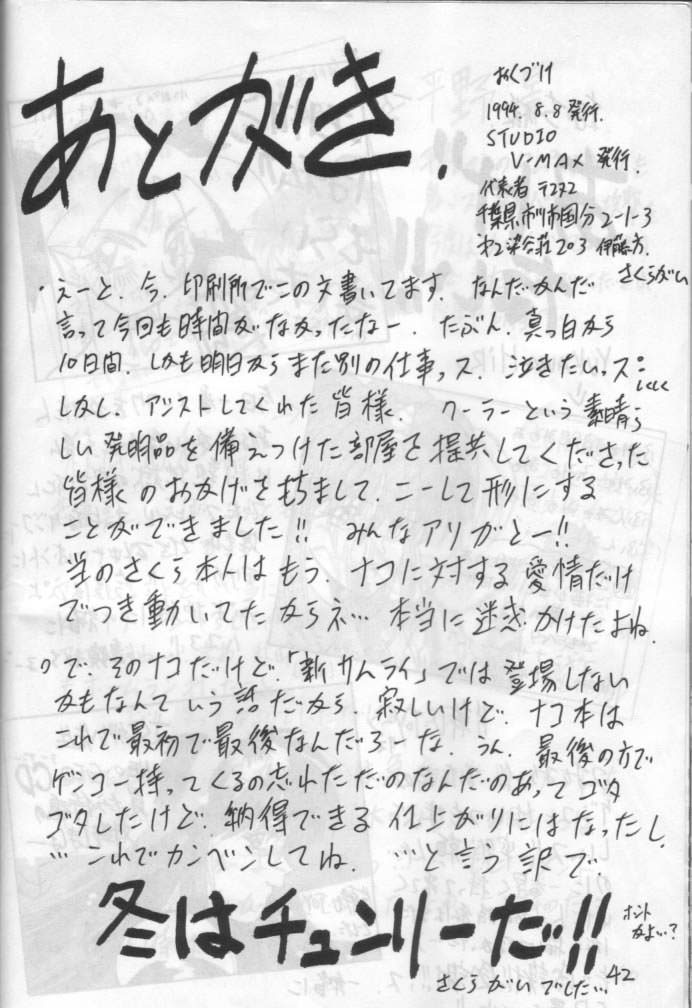 あとがき.
おくづけ
1994. 8. 8 発行.
STUDIO
V-MAX 発行.
代表者
千葉県市川市国分2-1-3
染谷荘203 伊藤方.
さくらがい
・えーと. 今. 印刷所でこの文書いてます. なんだかんだ
言って今回も時間がなかったなー. たぶん. 真っ白から
10日間. しかも明日からまた別の仕事っス. 泣きたいっス
しかし. アシストしてくれた皆様. クーラーという素晴ら
しい発明品を備えつけた部屋を提供してくださった
皆様のおかげを持ちまして. こーして形にする
ことができました!! みんなアリガとー!!
当のさくら本人はもう. ナコに対する愛情だけ
でつき動いてたからネ… 本当に迷惑かけたよね.
○で. そのナコだけど.「新サムライ」では登場しない
かもなんていう話だから. 寂しいけど. ナコ本は
これで最初で最後なんだろーな. うん. 最後の方で
ゲンコー持ってくるの忘れただのなんだのあってゴタ
ゴタしたけど. 納得できる仕上がりにはなったし.
…これでカンベンしてね. …と言う訳で
冬はチュンリーだっ!!
ホント
かよぃ?
さくらがいでした…
42